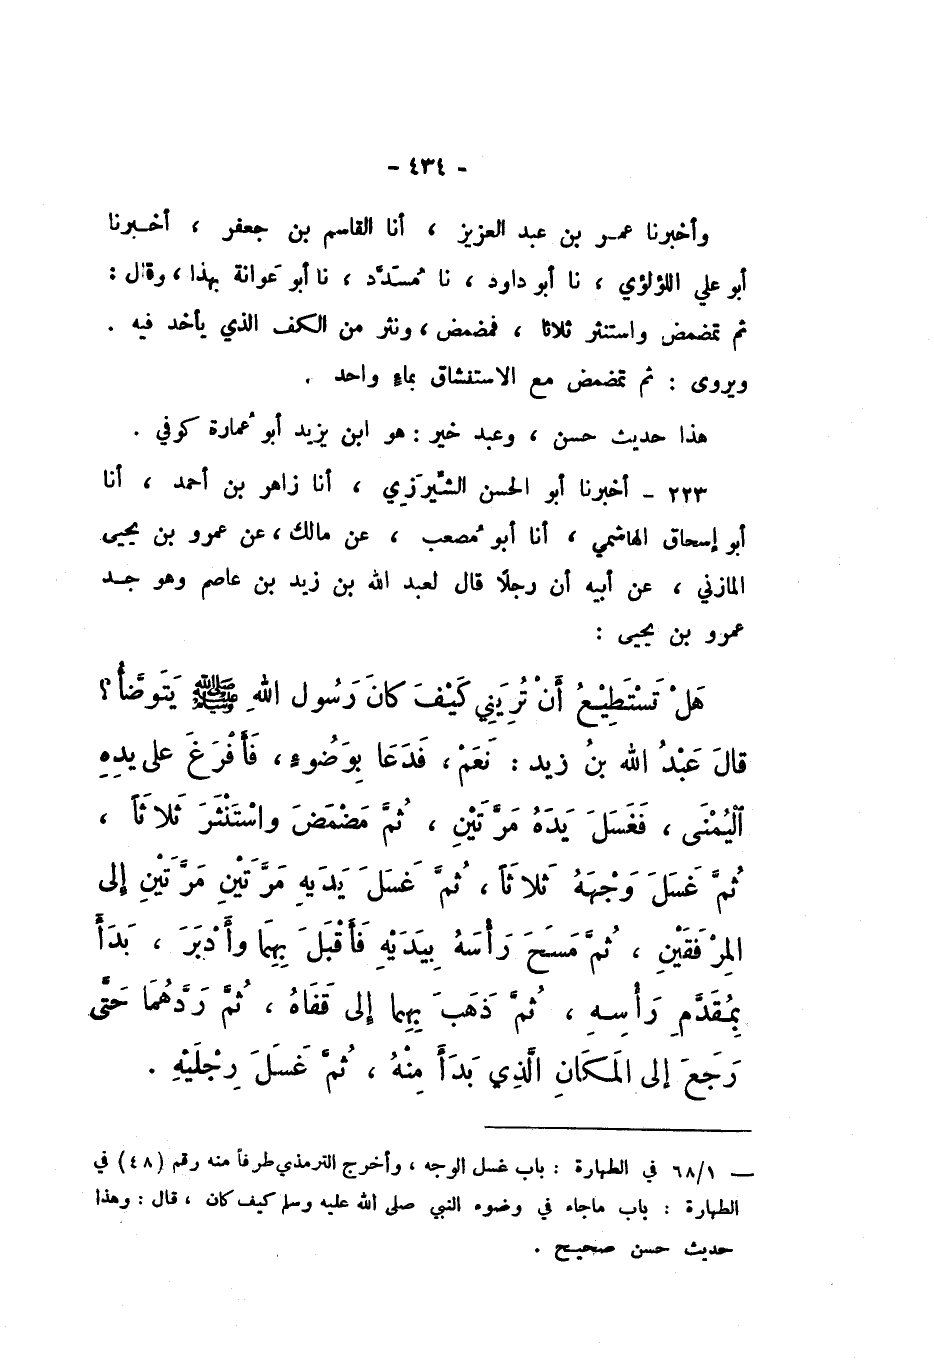 - ٤٣٤ -
وأخبرنا عمر بن عبد العزيز ، أنا القاسم بن جعفر ، أخبرنا
أبو علي اللؤلؤي ، نا أبو داود ، نا مُسدَّد ، نا أبو عَوانة بهذا ، وقال :
ثم تمضمض واستنثر ثلاثا ، فمضمض ، ونثر من الكف الذي يأخذ فيه .
ويروى : ثم تمضمض مع الاستنشاق بماءٍ واحد .
هذا حديث حسن ، وعبد خير : هو ابن يزيد أبو عُمارة كوفي .
٢٢٣ - أخبرنا أبو الحسن الشَّيرَزِي ، أنا زاهر بن أحمد ، أنا
أبو إسحاق الهاشمي ، أنا أبو مُصعب ، عن مالك ، عن عمرو بن يحيى
المازني ، عن أبيه أن رجلًا قال لعبد الله بن زيد بن عاصم وهو جد
عمرو بن يحيى :
هَلْ تَسْتَطِيْعُ أَنْ تُرِيَنِي كَيْفَ كانَ رَسُول اللهِ ﷺ يَتَوضَّأُ ؟
قالَ عَبْدُ الله بنُ زيد : نَعَمْ ، فَدَعَا بِوَضُوءٍ ، فَأَفْرَغَ على يدِهِ
اَلْيُمْنَى ، فَغَسَلَ يَدَهُ مَرَّتَيْنِ ، ثُمَّ مَضْمَضَ واسْتَنْثَرَ ثَلاثَاً ،
ثُمَّ غَسَلَ وَجْهَهُ ثَلاثَاً ، ثُمَّ غَسَلَ يَدَيهِ مَرَّتَيْنِ مَرَّتَيْنِ إلى
المِرْفَقَيْنِ ، ثُمَّ مَسَحَ رَأسَهُ بِيَدَيْهِ فَأَقْبَلَ بِهِمَا وأَدْبَرَ ، بَدَأَ
بِمُقَدَّمِ رَأْسِهِ ، ثُمَّ ذَهَبَ بِهِما إلى قَفَاهُ ، ثُمَّ رَدَّهُمَا حَتَّى
رَجَعَ إلى المَكَانِ الَّذِي بَدَأَ مِنْهُ ، ثُمَّ غَسَلَ رِجْلَيْهِ .
— ٦٨/١ في الطهارة : باب غسل الوجه ، وأخرج الترمذي طرفاً منه رقم (٤٨) في
الطهارة : باب ماجاء في وضوء النبي صلى الله عليه وسلم كيف كان ، قال : وهذا
حديث حسن صحيح .